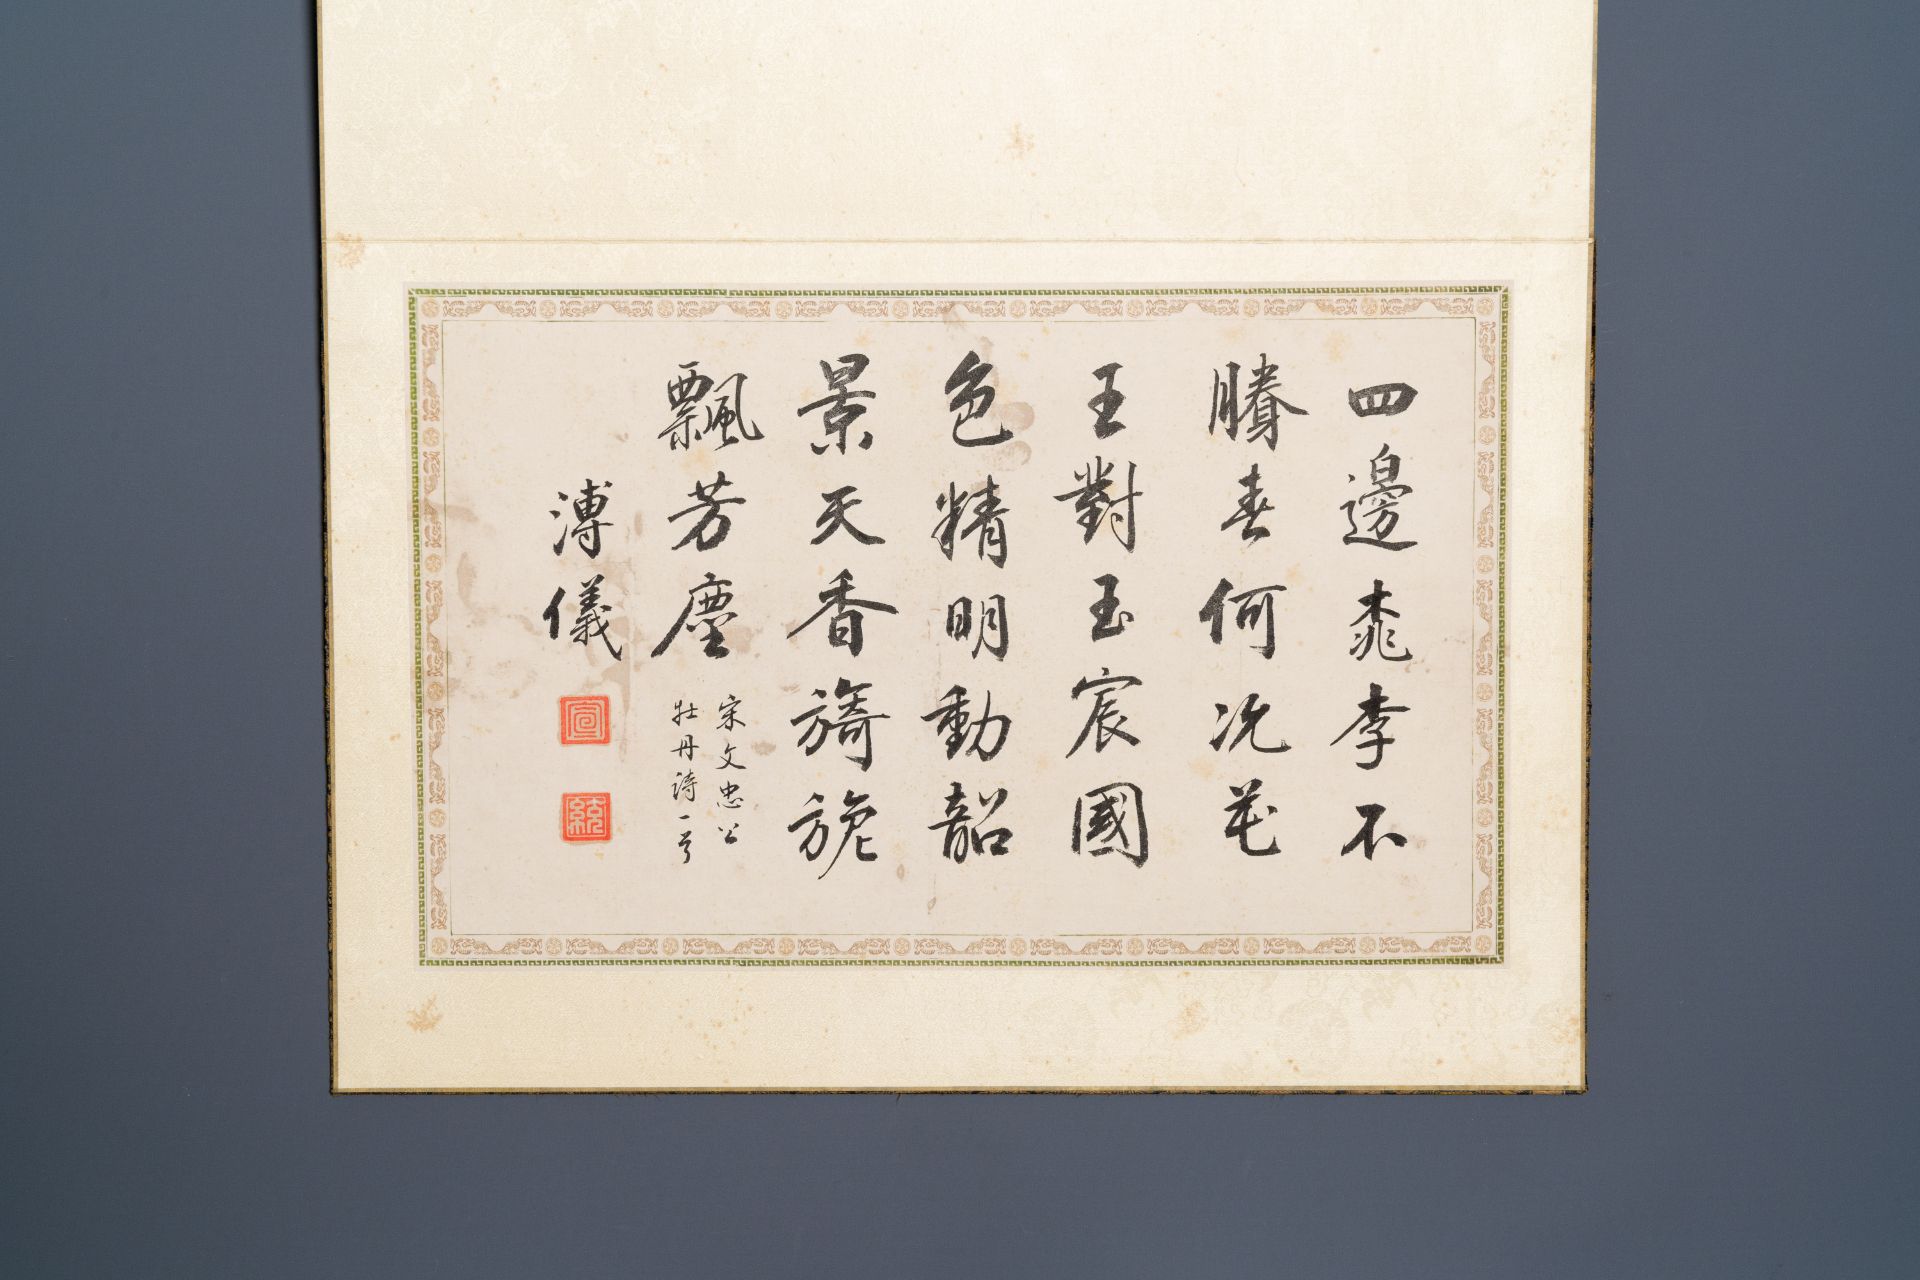 四邊桃李不
賸春何況花
王對玉宸國
色精明動韶
景天香旖旎
飄芳塵
宋文忠公
牡丹詩一首
溥儀
宣
統